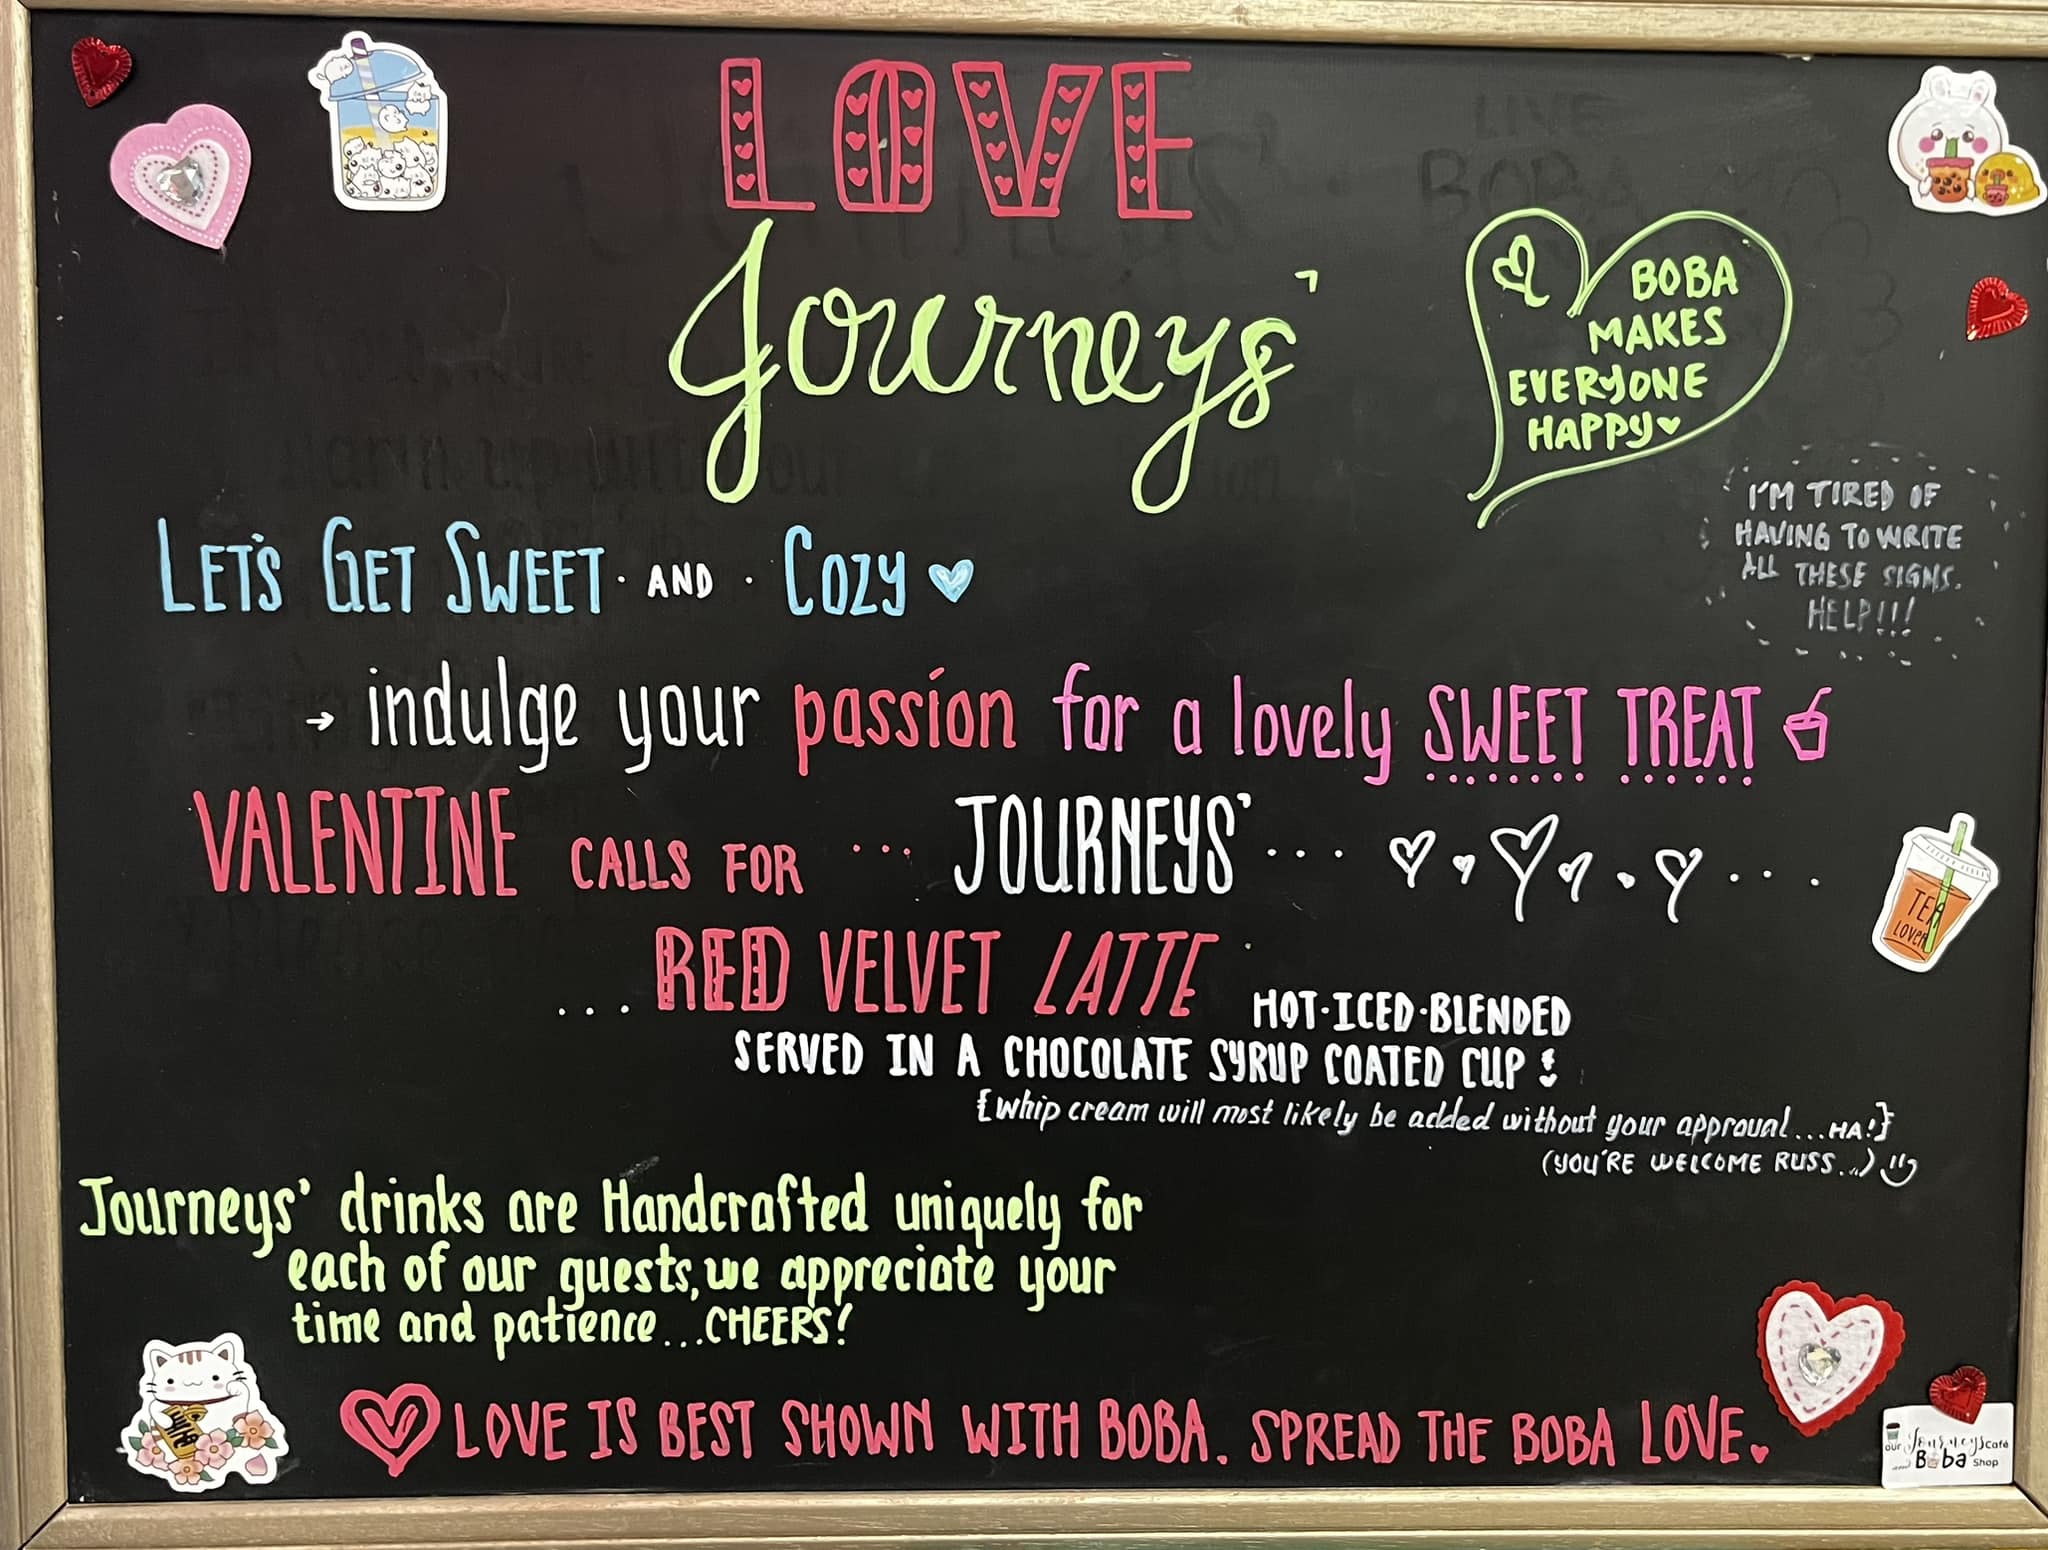 LOVE
Journeys'
BOBA
MAKES
EVERYONE
HAPPY
I'M TIRED OF
HAVING TO WRITE
ALL THESE SIGNS.
HELP!!!
LET'S GET SWEET · AND · COZY
→ indulge your passion for a lovely SWEET TREAT
VALENTINE CALLS FOR ... JOURNEYS' ... ...
... RED VELVET LATTE HOT·ICED·BLENDED
SERVED IN A CHOCOLATE SYRUP COATED CUP!
{Whip cream will most likely be added without your approval...HA!}
(YOU'RE WELCOME RUSS...)
Journeys' drinks are Handcrafted uniquely for
each of our guests, we appreciate your
time and patience...CHEERS!
LOVE IS BEST SHOWN WITH BOBA. SPREAD THE BOBA LOVE.
TEA
LOVER
our Journeys Café
and Boba Shop